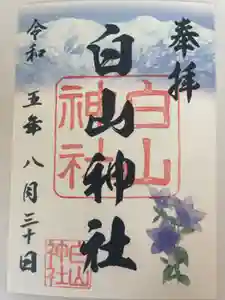 奉拝
白山神社
令和五年八月三十日
白山
神社
白山
神社